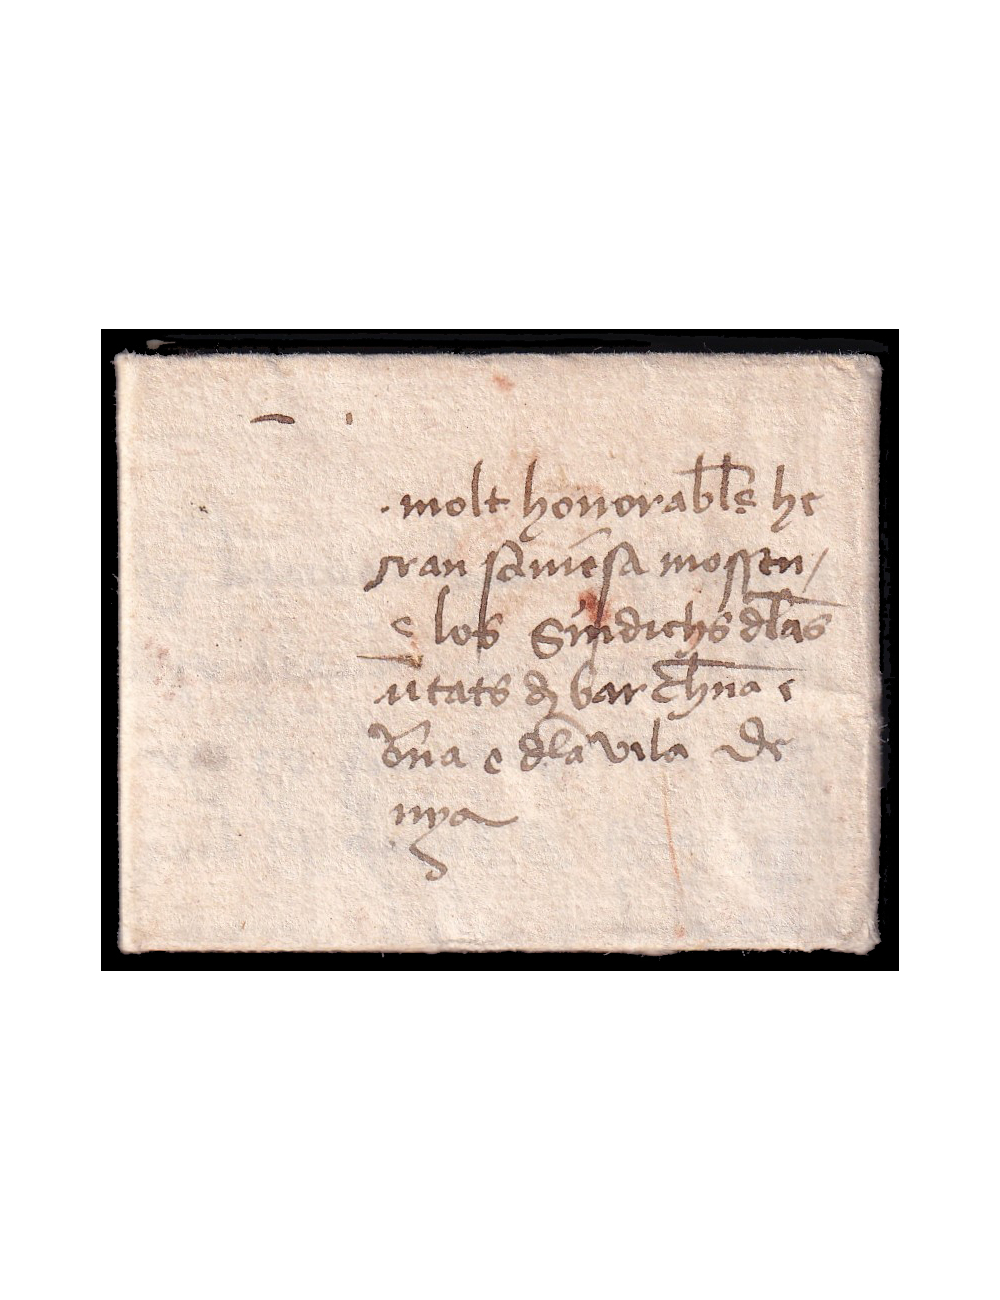 molt honorable he
gran saviesa mossen
e los Sindichs dlas
utats d barchna e
e dla vila de
nya